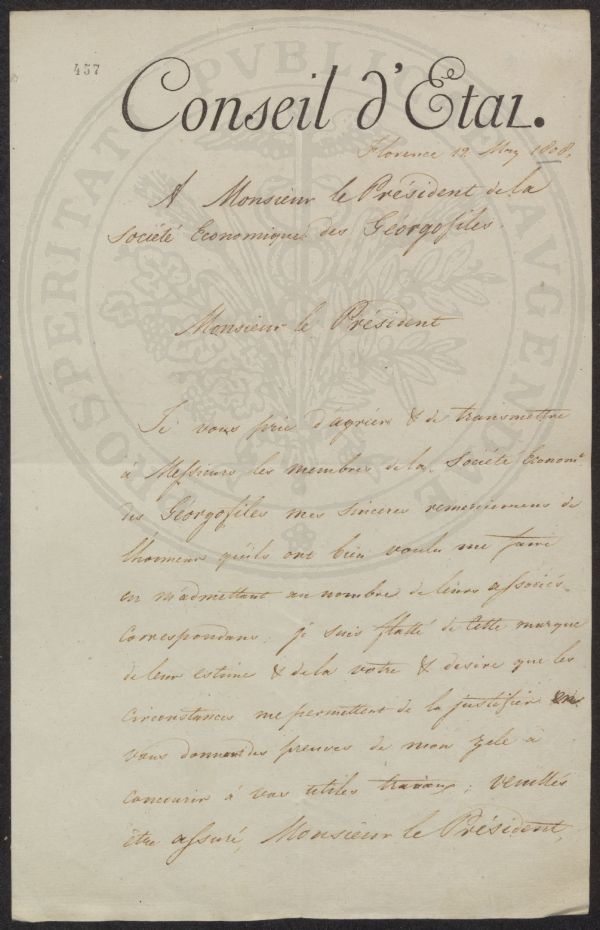 457
Conseil d'Etat.
Florence 12. May 1808.
A Monsieur le Président de la
Société Economique des Géorgofiles.
Monsieur le Président
Je vous prie d'agréer & de transmettre
à Messieurs les membres de la Société Econom.e
des Géorgofiles mes sinceres remerciemens de
l'honneur qu'ils ont bien voulu me faire
en m'admettant au nombre de leurs associés
correspondans; je suis flatté de cette marque
de leur estime & de la votre & desire que les
circonstances me permettent de la justifier en
vous donnant des preuves de mon zele à
concourir à vos utiles travaux; veuillés
être assuré, Monsieur le Président,
PROSPERITATI PVBLICAE AVGENDAE